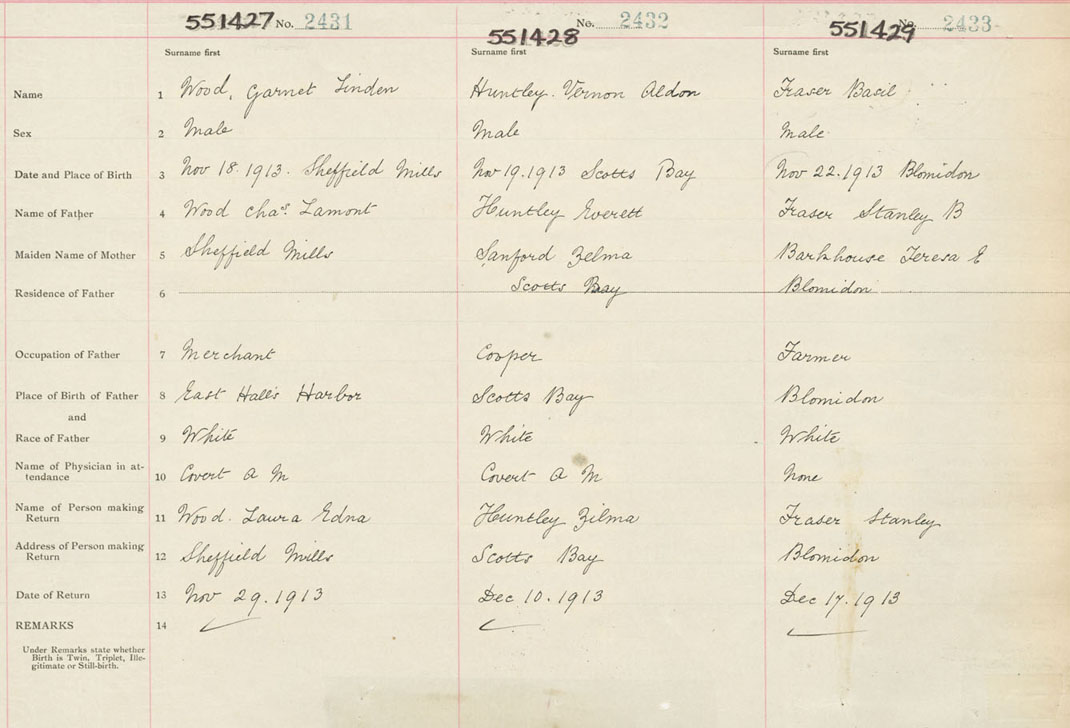 551427 No. 2431
551428 No. 2432
551429 No. 2433
Surname first Surname first Surname first
Name 1 Wood, Garnet Linden Huntley. Vernon Aldon Fraser Basil
Sex 2 Male Male Male
Date and Place of Birth 3 Nov 18. 1913. Sheffield Mills Nov 19. 1913 Scotts Bay Nov 22. 1913 Blomidon
Name of Father 4 Wood Chas. Lamont Huntley Everett Fraser Stanley B
Maiden Name of Mother 5 Sheffield Mills Sanford Zelma Barkhouse Teresa E
Residence of Father 6 Scotts Bay Blomidon
Occupation of Father 7 Merchant Cooper Farmer
Place of Birth of Father 8 East Halls Harbor Scotts Bay Blomidon
and
Race of Father 9 White White White
Name of Physician in at-
tendance 10 Covert A M Covert A M None
Name of Person making
Return 11 Wood. Laura Edna Huntley Zilma Fraser Stanley
Address of Person making
Return 12 Sheffield Mills Scotts Bay Blomidon
Date of Return 13 Nov 29. 1913 Dec 10. 1913 Dec 17. 1913
REMARKS 14
Under Remarks state whether
Birth is Twin, Triplet, Ille-
gitimate or Still-birth.